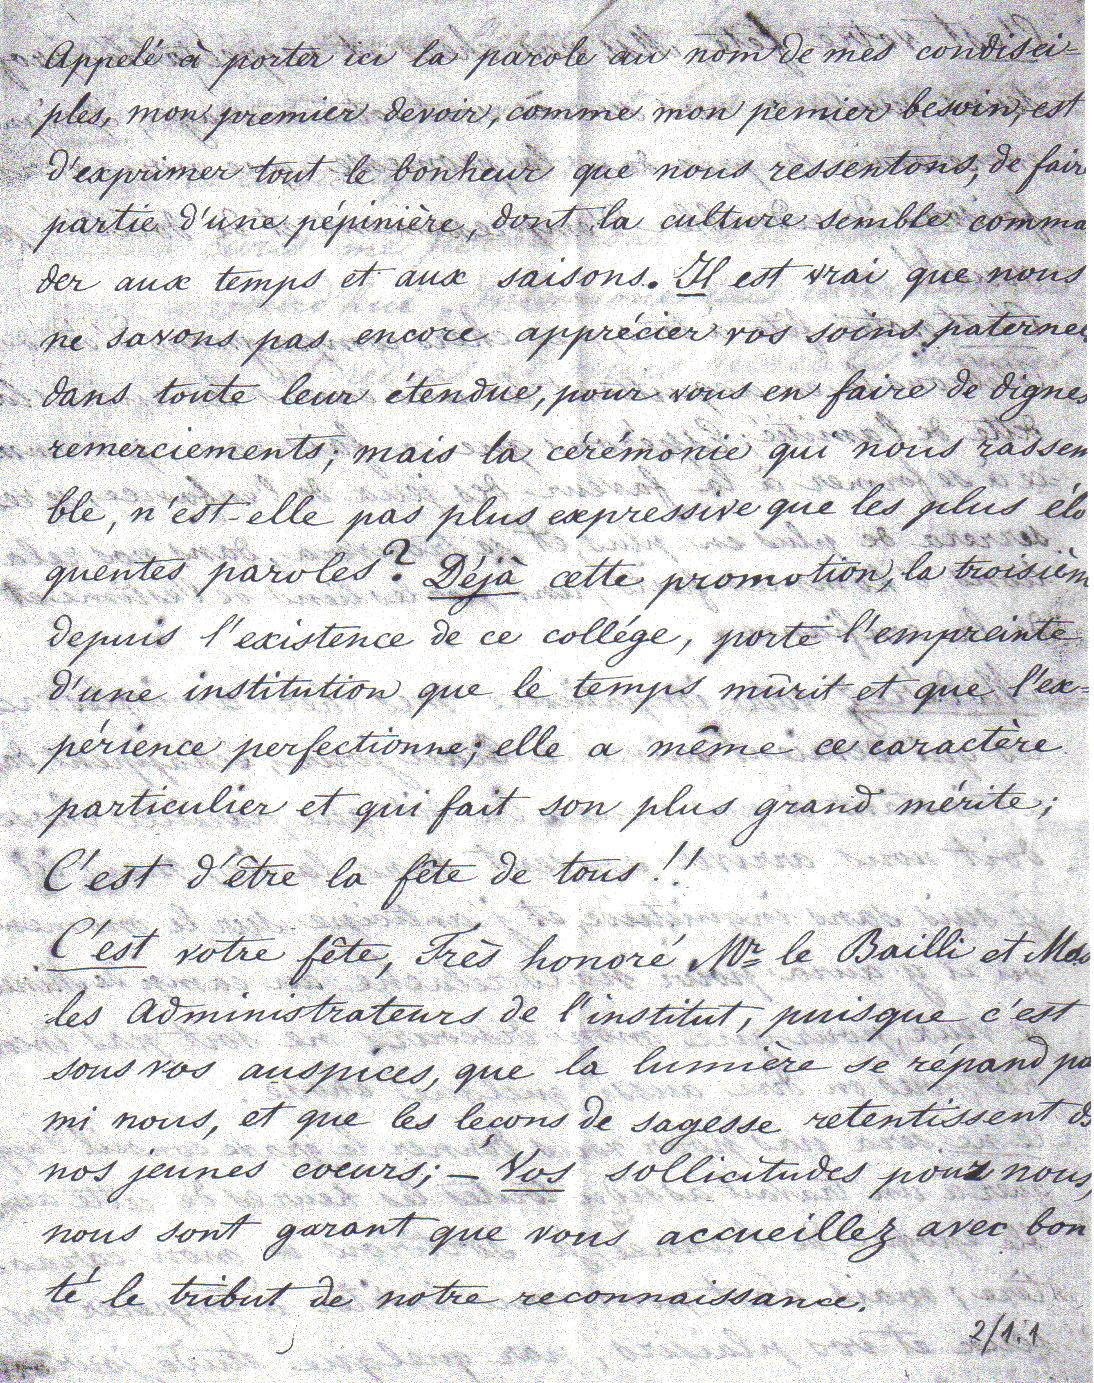 Appelé à porter ici la parole au nom de mes condisci=
ples, mon premier devoir, comme mon pemier besoin, est
d'exprimer tout le bonheur que nous ressentons, de fair
partie d'une pépinière, dont la culture semble comma
der aux temps et aux saisons. Il est vrai que nous
ne savons pas encore apprécier vos soins paternel
dans toute leur étendue, pour vous en faire de dignes
remerciements; mais la cérémonie qui nous rassem
ble, n'est-elle pas plus expressive que les plus élo
quentes paroles? Déjà cette promotion, la troisièm
depuis l'existence de ce collége, porte l'empreinte
d'une institution que le temps mûrit et que l'ex=
périence perfectionne; elle a même ce caractère
particulier et qui fait son plus grand mérite;
C'est d'être la fête de tous!!
C'est votre fête, Très honoré Mr le Bailli et Mes
les Administrateurs de l'institut, puisque c'est
sous vos auspices, que la lumière se répand pa
mi nous, et que les leçons de sagesse retentissent d
nos jeunes coeurs; – Vos sollicitudes pour nous,
nous sont garant que vous accueillez avec bon
té le tribut de notre reconnaissance.
2/1.1